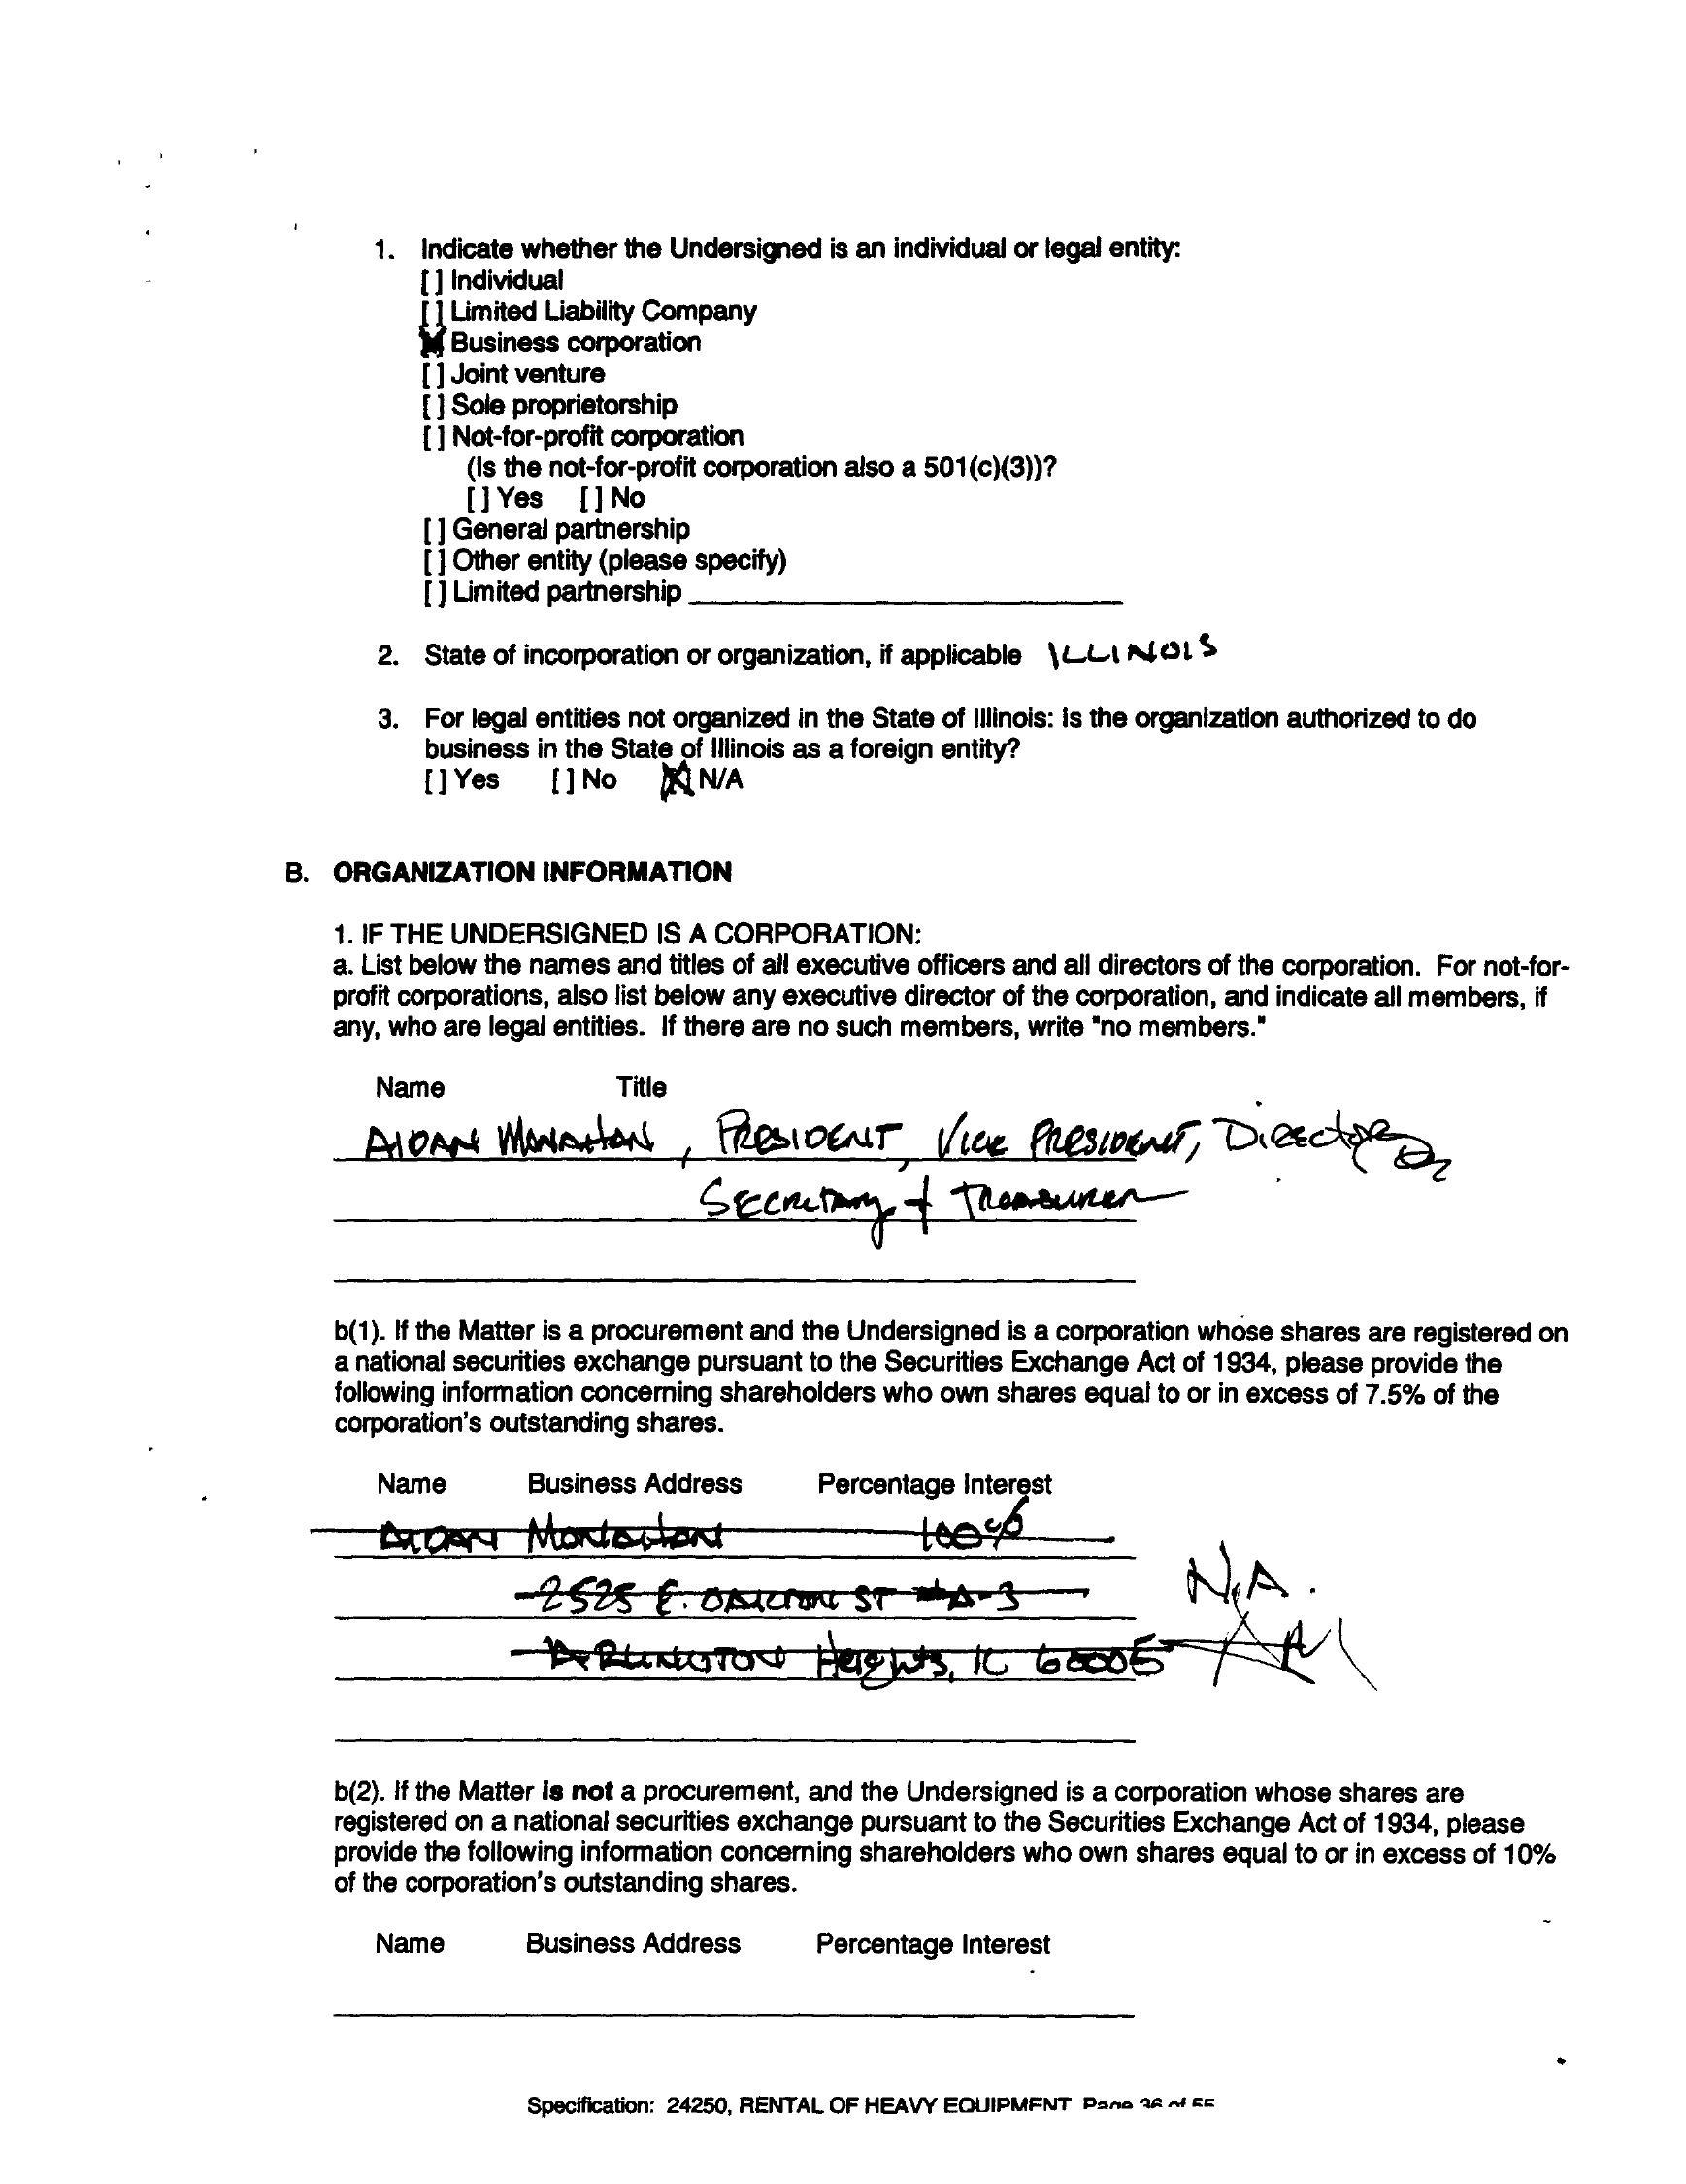 1. Indicate whether the Undersigned is an individual or legal entity:
[ ] Individual
[ ] Limited Liability Company
[X] Business corporation
[ ] Joint venture
[ ] Sole proprietorship
[ ] Not-for-profit corporation
(Is the not-for-profit corporation also a 501(c)(3))?
[ ] Yes [ ] No
[ ] General partnership
[ ] Other entity (please specify)
[ ] Limited partnership
2. State of incorporation or organization, if applicable ILLINOIS
3. For legal entities not organized in the State of Illinois: Is the organization authorized to do
business in the State of Illinois as a foreign entity?
[ ] Yes [ ] No [X] N/A
B. ORGANIZATION INFORMATION
1. IF THE UNDERSIGNED IS A CORPORATION:
a. List below the names and titles of all executive officers and all directors of the corporation. For not-for-
profit corporations, also list below any executive director of the corporation, and indicate all members, if
any, who are legal entities. If there are no such members, write "no members."
Name Title
AIDAN MONAHAN, PRESIDENT, VICE PRESIDENT, Director
Secretary + Treasurer
b(1). If the Matter is a procurement and the Undersigned is a corporation whose shares are registered on
a national securities exchange pursuant to the Securities Exchange Act of 1934, please provide the
following information concerning shareholders who own shares equal to or in excess of 7.5% of the
corporation's outstanding shares.
Name Business Address Percentage Interest
AIDAN MONAHAN 100%
2525 E. OAKTON ST #A-3
N.A.
ARLINGTON Heights, IL 60005 AM
b(2). If the Matter is not a procurement, and the Undersigned is a corporation whose shares are
registered on a national securities exchange pursuant to the Securities Exchange Act of 1934, please
provide the following information concerning shareholders who own shares equal to or in excess of 10%
of the corporation's outstanding shares.
Name Business Address Percentage Interest
Specification: 24250, RENTAL OF HEAVY EQUIPMENT Page 36 of 55